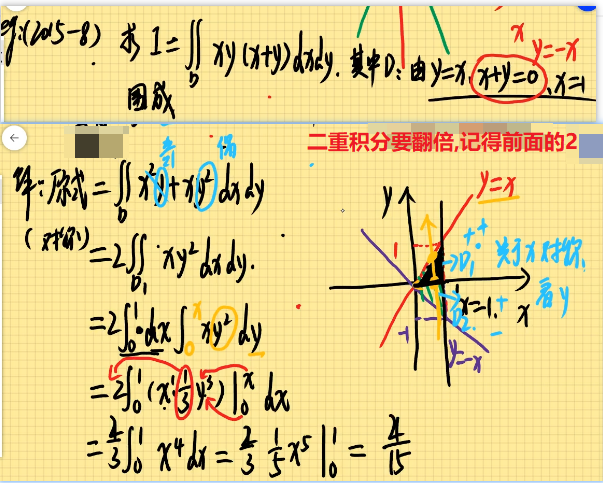 例:(2015-8) 求 I=∬_D xy(x+y)dxdy. 其中D:由y=x, x+y=0, x=1
围成
x
y=-x
二重积分要翻倍,记得前面的2
奇 偶
解:原式=∬_D x²y+xy²dxdy
(对称)=2∬_{D₁} xy²dxdy.
=2∫₀¹dx∫₀ˣ xy²dy
=2∫₀¹(x·1/3 y³)|₀ˣ dx
=2/3∫₀¹ x⁴dx = 2/3 1/5 x⁵|₀¹ = 4/15
y
y=x
1
D₁
++
关于x对称,
看y
D₂
+
-
x=1.
x
-1
y=-x